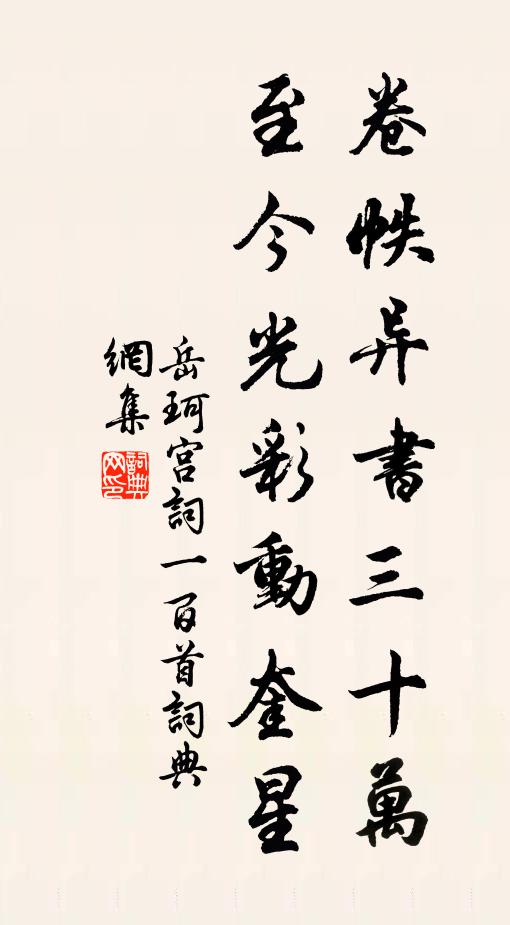 卷帙异書三十萬
至今光彩動奎星
岳珂宫詞一百首詞典
網集
詞典網印